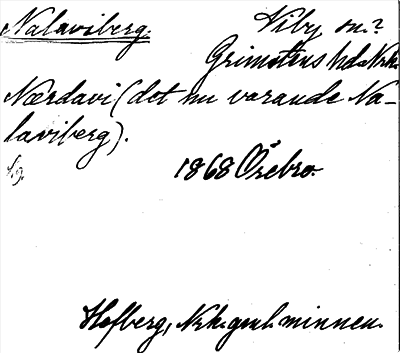 Nalaviberg. Viby sn.?
Grimstens hd. Nrk.
Nærdavi (det nu varande Na-
laviberg).
1868 Örebro.
Hofberg, Nrk. gml. minnen.